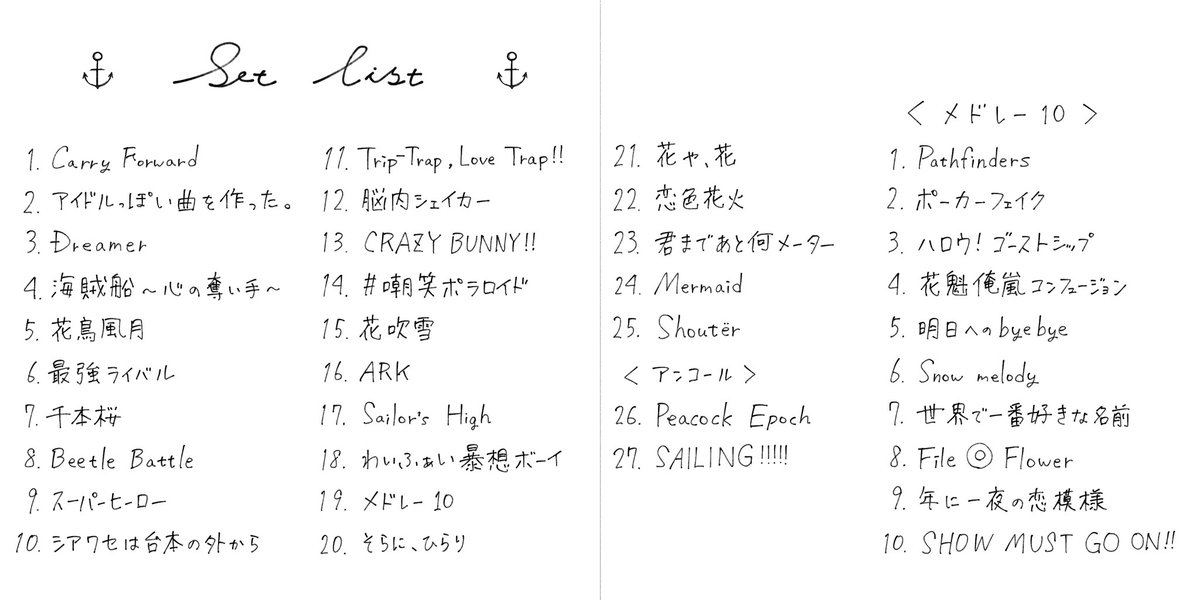 Set list
1. Carry Forward
2. アイドルっぽい曲を作った。
3. Dreamer
4. 海賊船～心の奪い手～
5. 花鳥風月
6. 最強ライバル
7. 千本桜
8. Beetle Battle
9. スーパーヒーロー
10. シアワセは台本の外から
11. Trip-Trap, Love Trap!!
12. 脳内シェイカー
13. CRAZY BUNNY!!
14. #嘲笑ポラロイド
15. 花吹雪
16. ARK
17. Sailor's High
18. わいふぁい暴想ボーイ
19. メドレー10
20. そらに、ひらり
21. 花や、花
22. 恋色花火
23. 君まであと何メーター
24. Mermaid
25. Shoutër
＜アンコール＞
26. Peacock Epoch
27. SAILING!!!!!
＜メドレー10＞
1. Pathfinders
2. ポーカーフェイク
3. ハロウ!ゴーストシップ
4. 花魁俺嵐コンフュージョン
5. 明日へのbyebye
6. Snow melody
7. 世界で一番好きな名前
8. File◎Flower
9. 年に一夜の恋模様
10. SHOW MUST GO ON!!